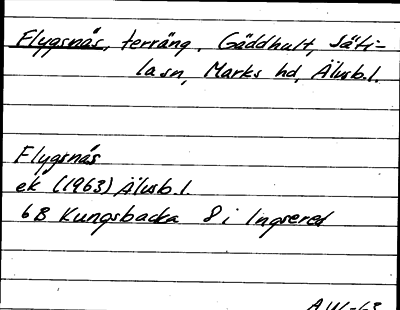 Flygsnäs, terräng, Gäddhult, Säti-
la sn, Marks hd, Älvsb.l.
Flygsnäs
ek (1963) Älvsb.l.
6B Kungsbacka 8 i Ingsered